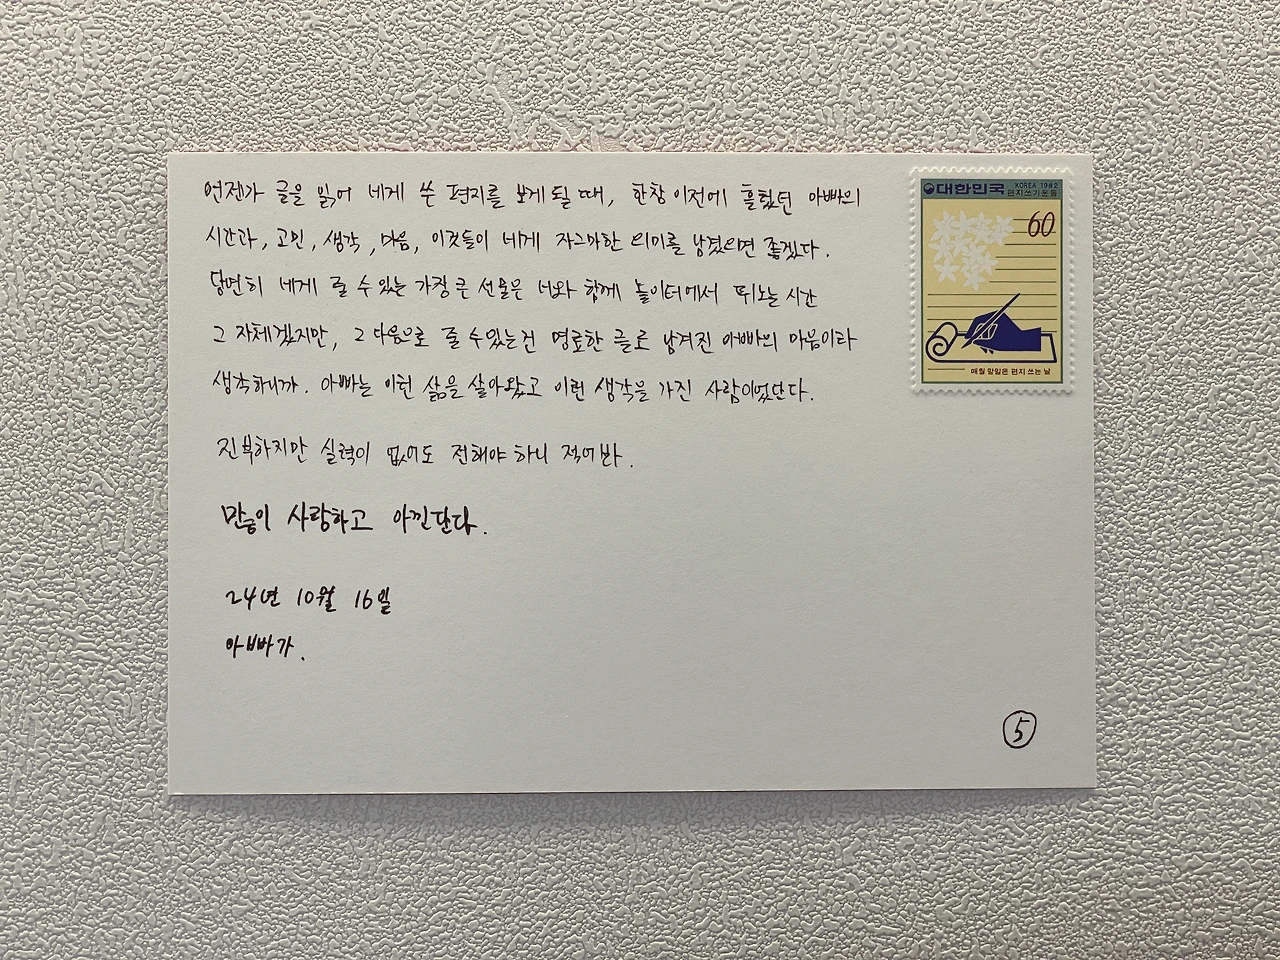 언젠가 글을 읽어 네게 쓴 편지를 보게 될 때, 한창 이전에 흘렀던 아빠의
시간과, 고민, 생각, 마음, 이것들이 네게 자그마한 의미를 남겼으면 좋겠다.
당연히 네게 줄 수 있는 가장 큰 선물은 너와 함께 놀이터에서 뛰노는 시간
그 자체겠지만, 그 다음으로 줄 수 있는건 명료한 글로 남겨진 아빠의 마음이라
생각하니까. 아빠는 이런 삶을 살아왔고 이런 생각을 가진 사람이었단다.
진부하지만 실력이 없어도 전해야 하니 적어봐.
많이 사랑하고 아낀단다.
24년 10월 16일
아빠가.
5
대한민국
KOREA 1982
편지쓰기운동
60
매월 말일은 편지 쓰는 날